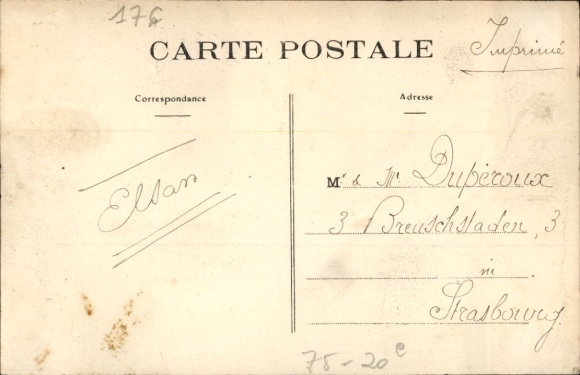 176
CARTE POSTALE
Imprimé
Correspondance
Adresse
Elsan
M' & Mr Dupéroux
3 Breuschstaden, 3
in
Strasbourg
75-20e